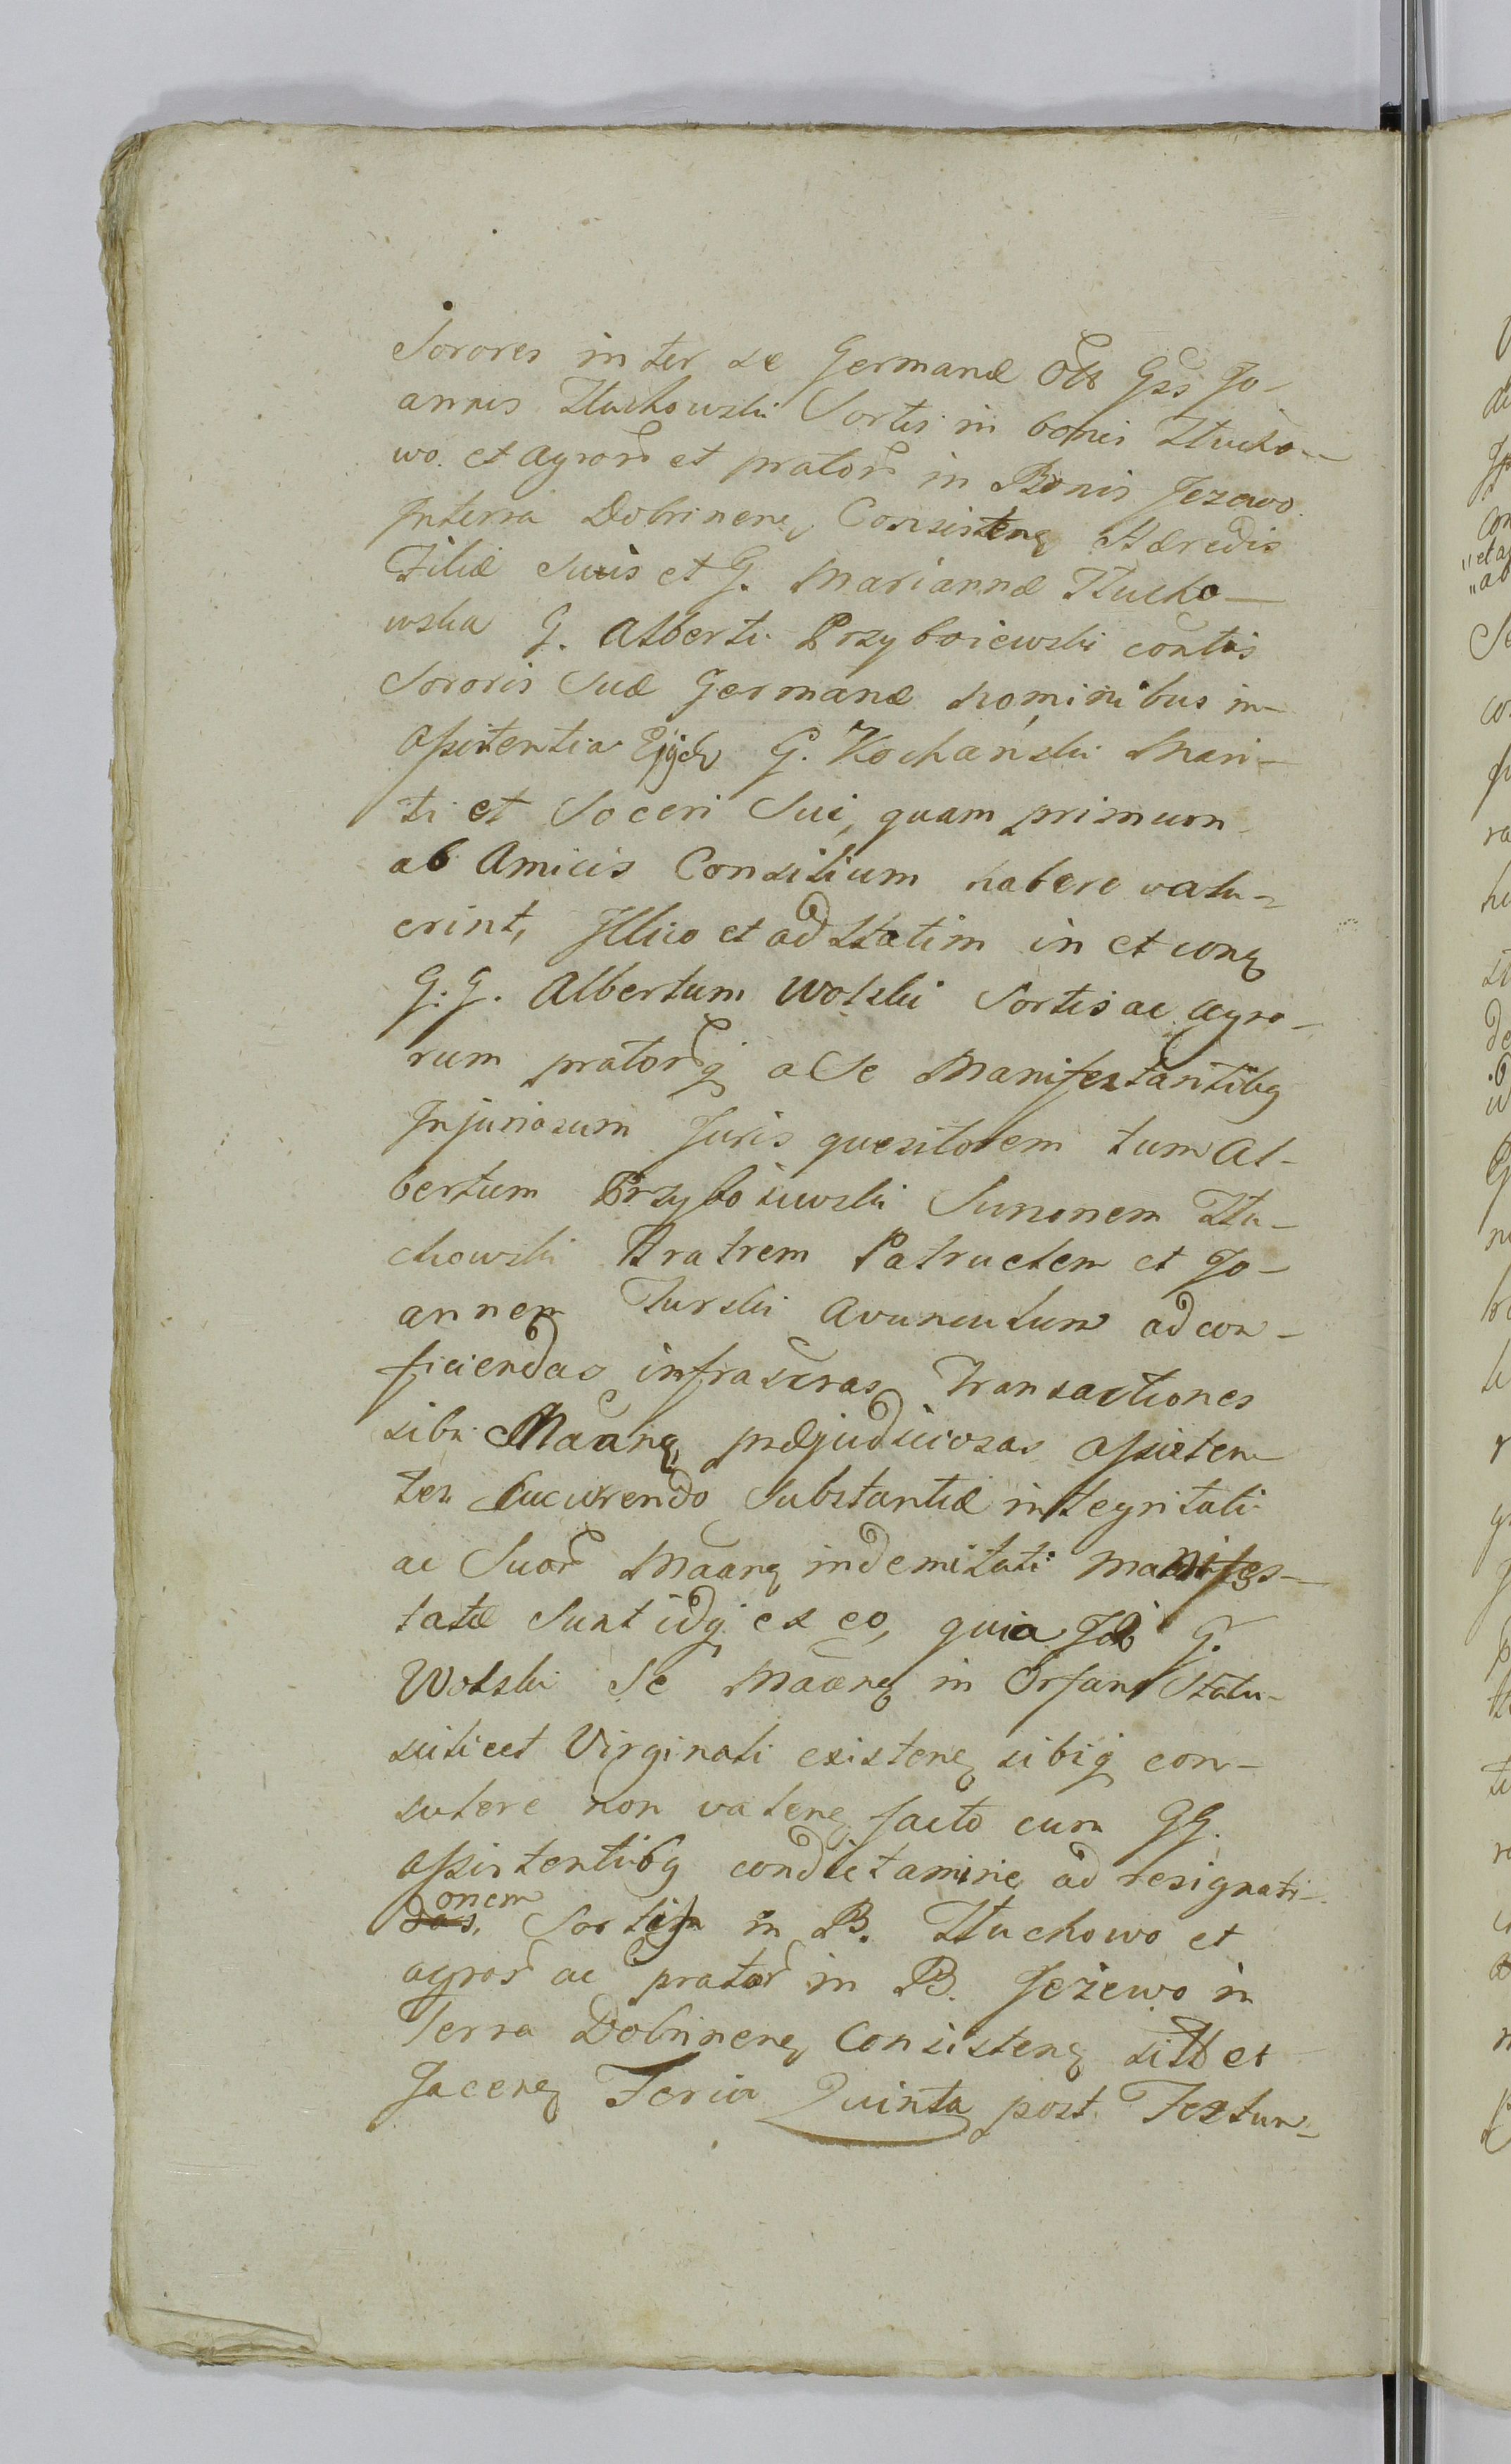 Sorores inter se Germanæ Olt Gsi Jo-
annis Tłuchowski Sortis in bonis Tłucho-
wo. et agror et prator in Bonis Jezewo
Interra Dobrinenȩ Consistenȩ Hæredis
Filiæ suis et G. Mariannæ Tłucho-
wska G. Alberti Przyboiewski contis
Sororis Suæ Germanæ nominibus in
assistentia G. Kochański Mari-
ti et Soceri Sui, quam primum
ab Amicis Consilium habere valu-
erint, Illico et ad statim in et conȩ
G. G. Albertum Wolski Sortis ac agro-
rum pratorq a Se Manifestantibȩ
Injuriosum Juris quesitorem tum Al-
bertum Przyboiewski Simonem Tłu-
chowski Fratrem Patruelem et Jo-
annem Turski Avunculum ad con-
ficiendas infrascras Transactiones
sibi Maanȩ præjudiciosas assisten-
tes Sucurendo Substantiæ integritati
ac Suor Maanȩ indemitati manifes-
tatæ Sunt idq ex eo, quia G.
Wolski Se Maanȩ in Orfano Statu
scilicet Virginali existenȩ sibiq con-
sulere non valenȩ facto cum GG.
assistentibȩ condictamine ad resignati-
onem Sortis in B. Tłuchowo et
agror ac prator in B. Jeżewo in
Terra Dobrinenȩ Consistenȩ sitt et
Jacenȩ Feria Quinta post Festum